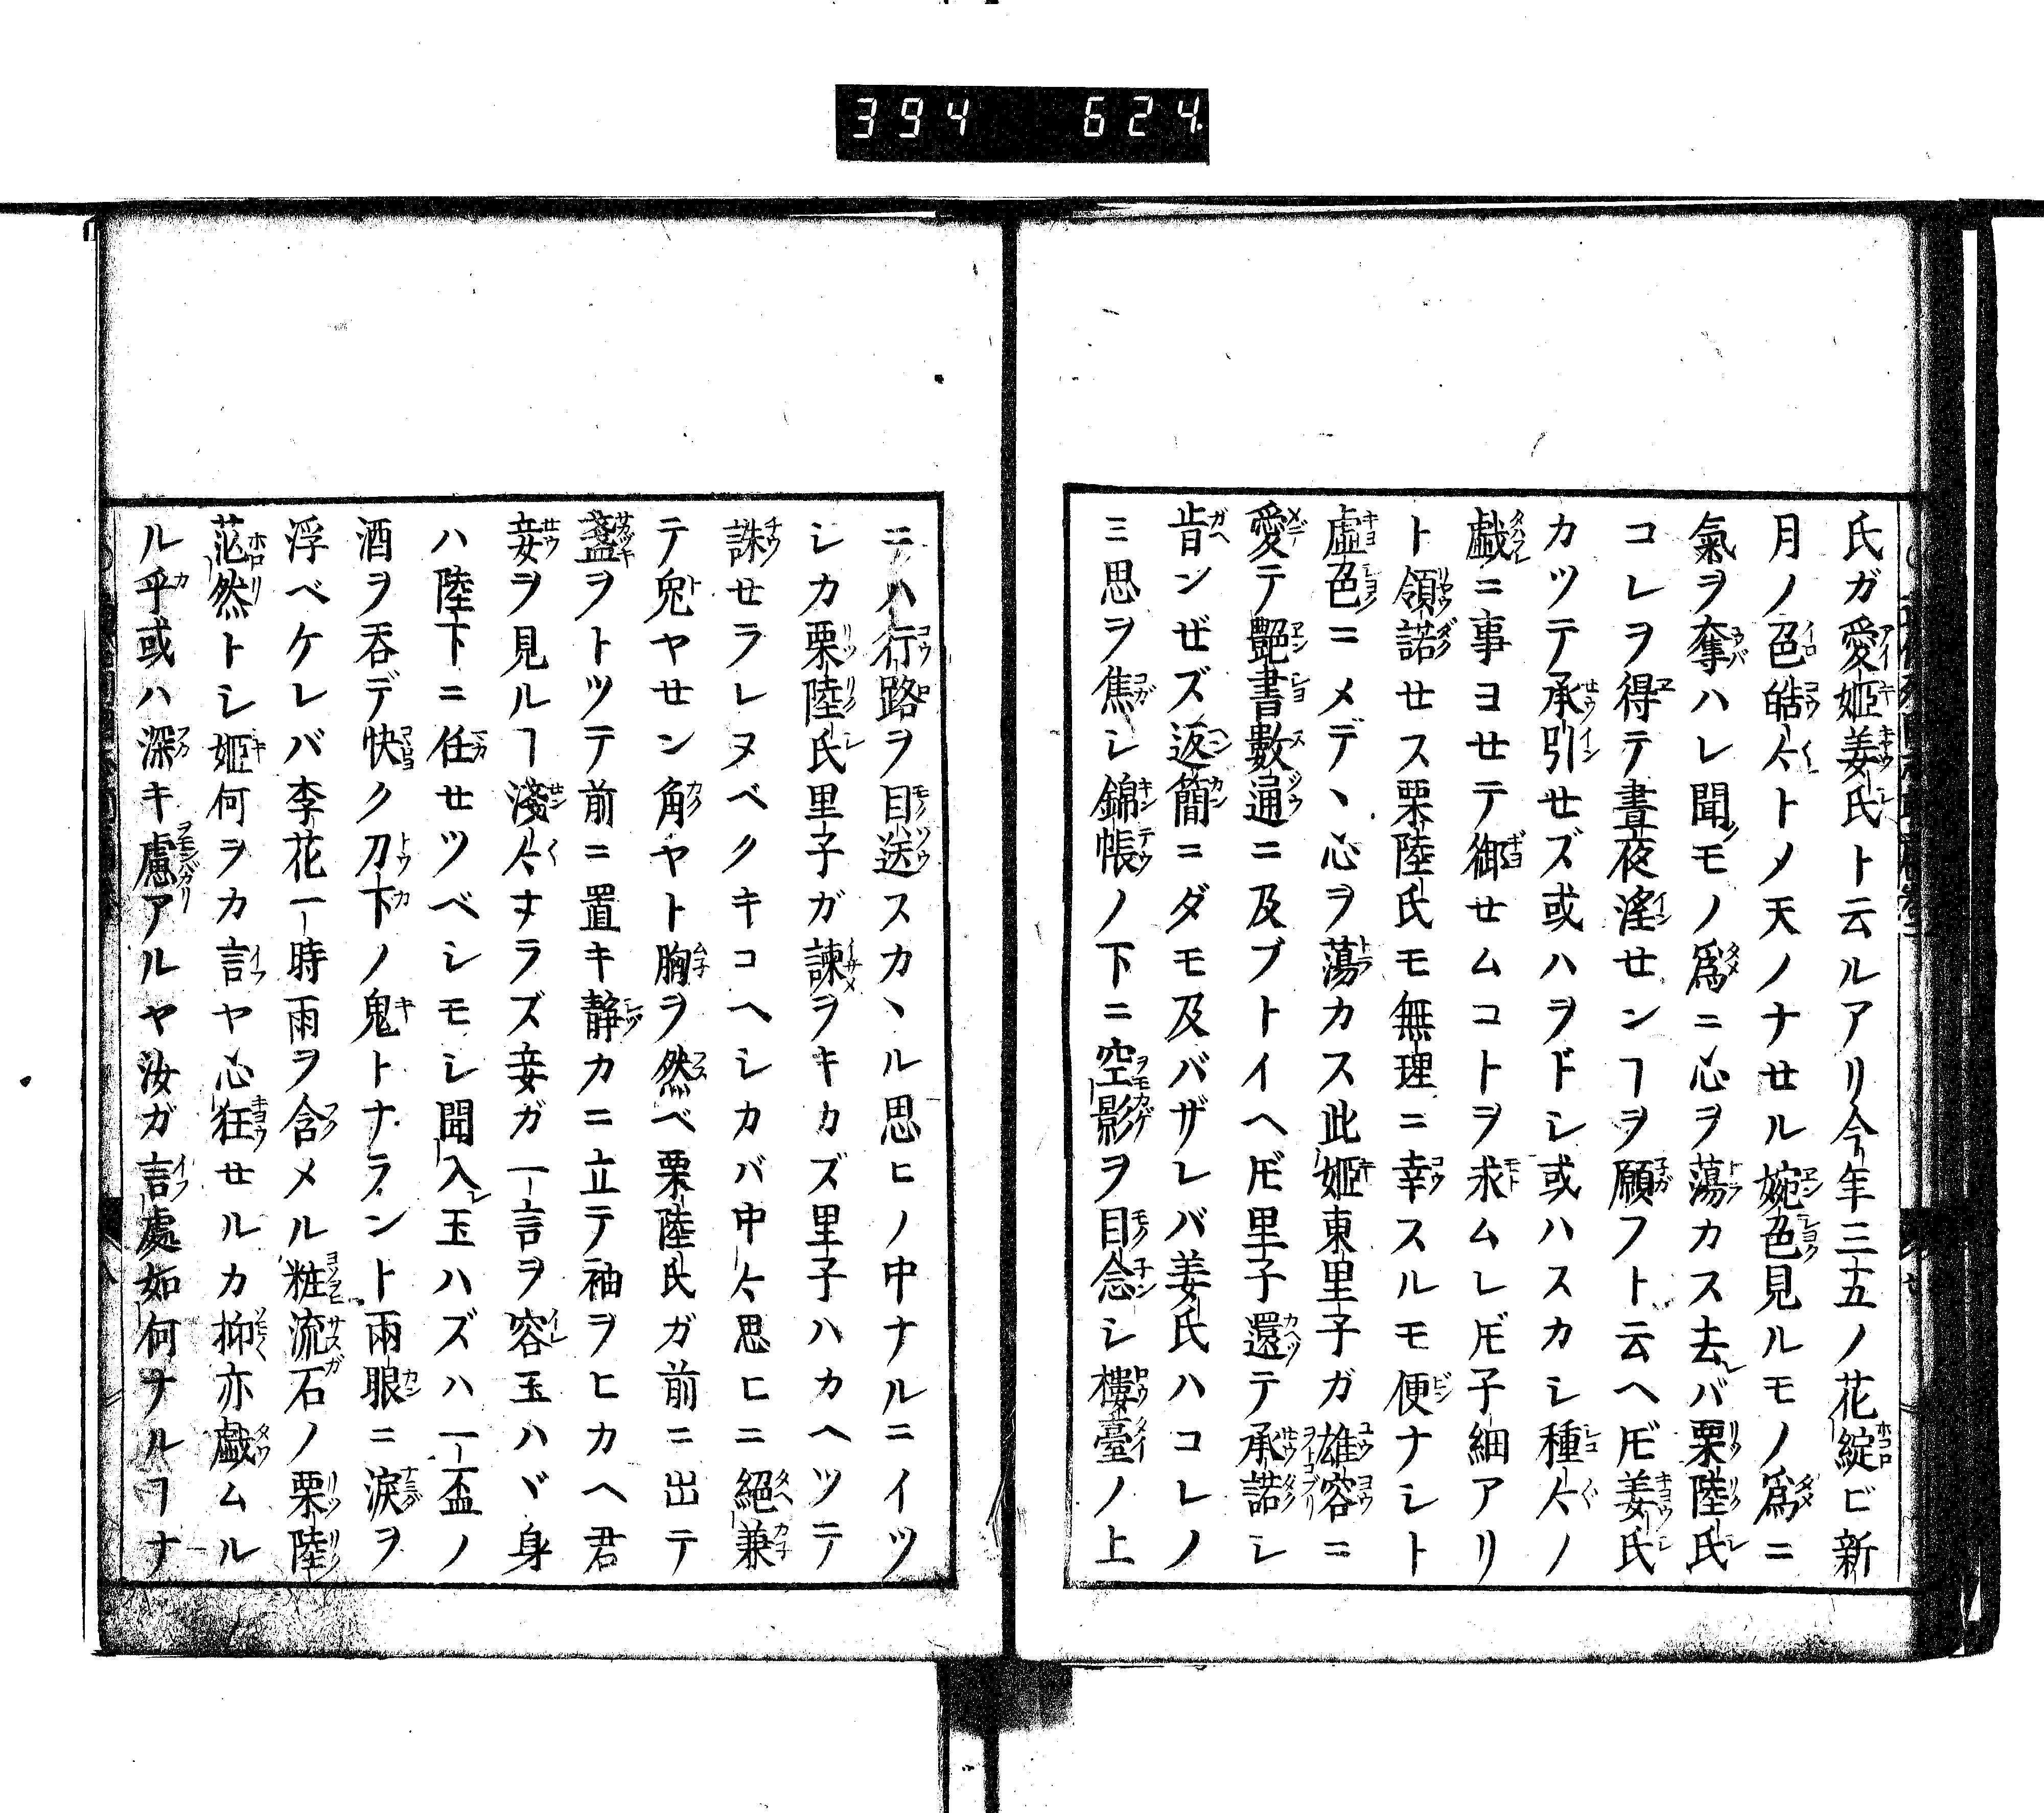 394 624
氏ガ愛姫姜氏ト云ルアリ今年三五ノ花綻ビ新
月ノ色皓々トメ天ノナセル婉色見ルモノ爲ニ
氣ヲ奪ハレ聞モノ爲ニ心ヲ蕩カス去レバ栗陸氏
コレヲ得テ晝夜淫センヿヲ願フト云ヘ𪜈姜氏
カツテ承引セズ或ハヲドシ或ハスカシ種々ノ
戯ニ事ヨセテ御セムコトヲ求ムレ𪜈子細アリ
ト領諾セス栗陸氏モ無理ニ幸スルモ便ナシト
虚色ニメデヽ心ヲ蕩カス此姫東里子ガ雄容ニ
愛テ艶書數通ニ及ブトイヘ𪜈里子還テ承諾シ
肯ンゼズ返簡ニダモ及バザレバ姜氏ハコレノ
ミ思ヲ焦シ錦帳ノ下ニ空影ヲ目念シ樓臺ノ上
ニハ行路ヲ目送スカヽル思ヒノ中ナルニイツ
シカ栗陸氏里子ガ諫ヲキカズ里子ハカヘツテ
誅セラレヌベクキコヘシカバ中々思ヒニ絕兼
テ兎ヤセン角ヤト胸ヲ然ベ栗陸氏ガ前ニ出テ
盞ヲトツテ前ニ置キ静カニ立テ袖ヲヒカヘ君
妾ヲ見ルヿ淺々すラズ妾ガ一言ヲ容玉ハヾ身
ハ陸下ニ任セツベシモシ聞入レ玉ハズハ一盃ノ
酒ヲ呑デ快ク刀下ノ鬼トナラント兩眼ニ淚ヲ
浮ベケレバ李花一時雨ヲ含メル粧流石ノ栗陸
茫然トシ姫何ヲカ言ヤ心狂セルカ抑亦戯ムル
ル乎或ハ深キ慮アルヤ汝ガ言處如何ナルヿナ